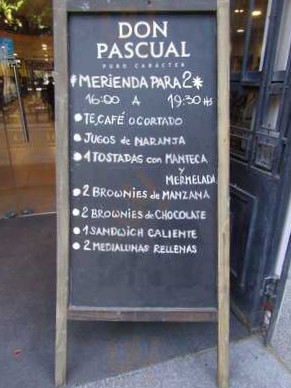 DON
PASCUAL
PURO CARÁCTER
*MERIENDA PARA 2*
16:00 A 19:30 HS
• TE, CAFÉ O CORTADO
• JUGOS de NARANJA
• 4 TOSTADAS con MANTECA
y
MERMELADA
• 2 BROWNIES de MANZANA
• 2 BROWNIES de CHOCOLATE
• 1 SANDWICH CALIENTE
• 2 MEDIALUNAS RELLENAS